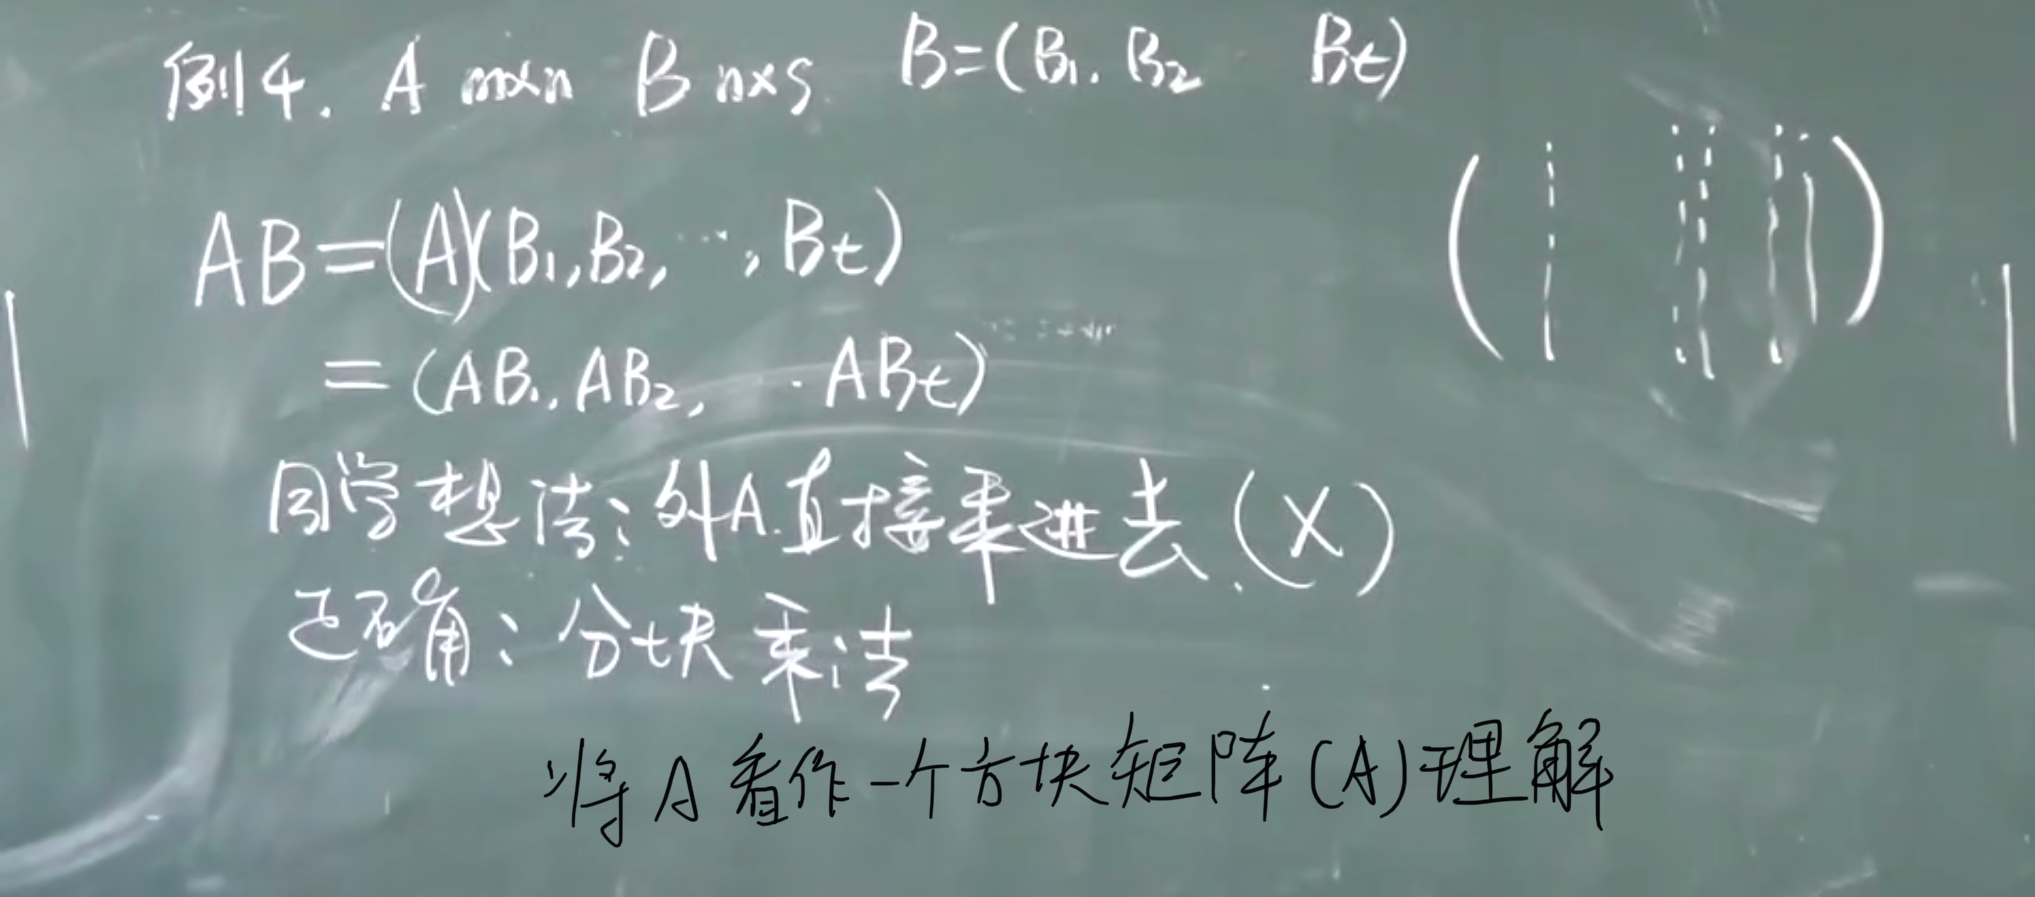 例4. A m×n B n×s B=(B₁. B₂ Bt)
AB=(A)(B₁,B₂,…,Bt)
=(AB₁,AB₂, . ABt)
同学想法:外A.直接乘进去.(X)
正确:分块乘法
将A看作一个方块矩阵(A)理解